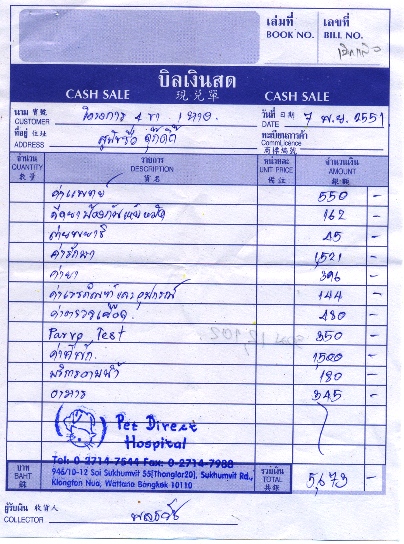 เล่มที่ เลขที่
BOOK NO. BILL NO.
บิลเงินสด
CASH SALE 現兌單 CASH SALE
นาม 寶號 โครงการ 4 ขา 1 นาง
CUSTOMER
วันที่ 日期 7 พ.ย. 2551
DATE
ที่อยู่ 住址
ADDRESS
ทะเบียนการค้า
Comm.Licence
商標編號
จำนวน รายการ หน่วยละ จำนวนเงิน
QUANTITY DESCRIPTION UNIT PRICE AMOUNT
數量 貨名 備註 銀額
ค่าแพทย์ 550 -
162 -
ถ่ายพยาธิ 45 -
ค่ารักษา 1,521 -
ค่ายา 396 -
ค่าเวชภัณฑ์และอุปกรณ์ 144 -
ค่าตรวจเลือด 480 -
Parvo Test 350 -
ค่าที่พัก 1,500 -
บริการอาบน้ำ 180 -
อาหาร 345 -
Pet Direct
Hospital
Tel: 0-2714-7544 Fax: 0-2714-7988
946/10-12 Soi Sukhumvit 55(Thonglor20), Sukhumvit Rd.,
Klongton Nua, Wattana Bangkok 10110
บาท รวมเงิน 5,673 -
BAHT TOTAL
銖 共銖
ผู้รับเงิน 收貨人
COLLECTOR